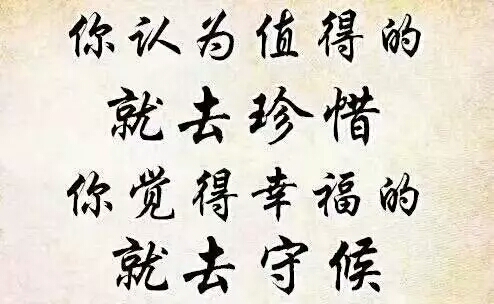 你认为值得的
就去珍惜
你觉得幸福的
就去守候